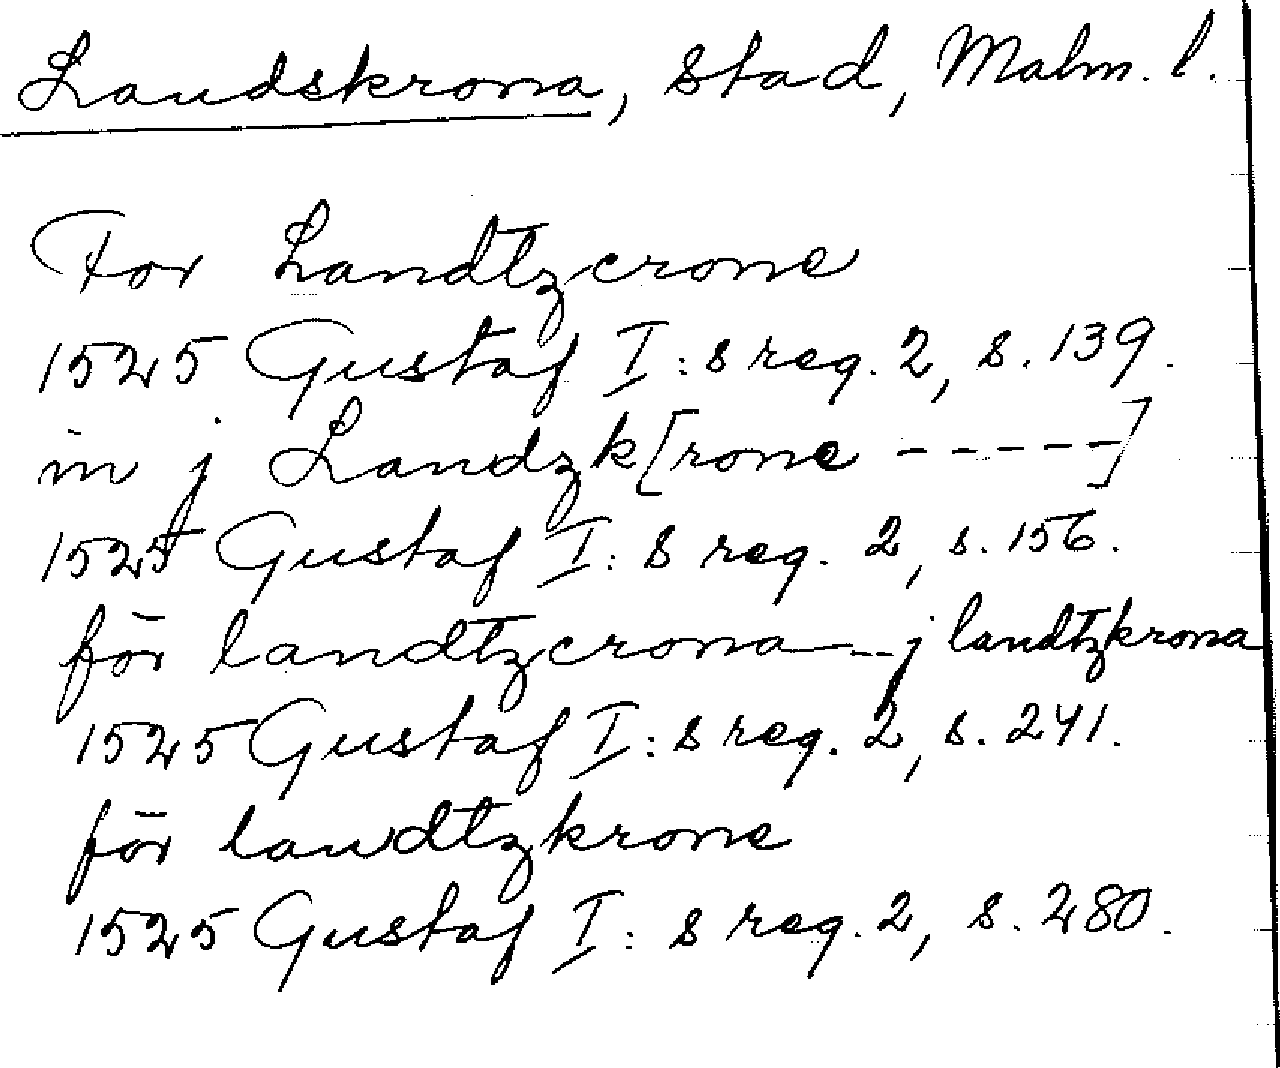 Landskrona, stad, Malm. l.
For Landtzcrone
1525 Gustaf I:s reg. 2, s. 139.
in j Landzk[rone -----]
1525 Gustaf I:s reg. 2, s. 156.
för landtzcrona --- j landtzkrona
1525 Gustaf I:s reg. 2, s. 241.
för landtzkrone
1525 Gustaf I:s reg. 2, s. 280.